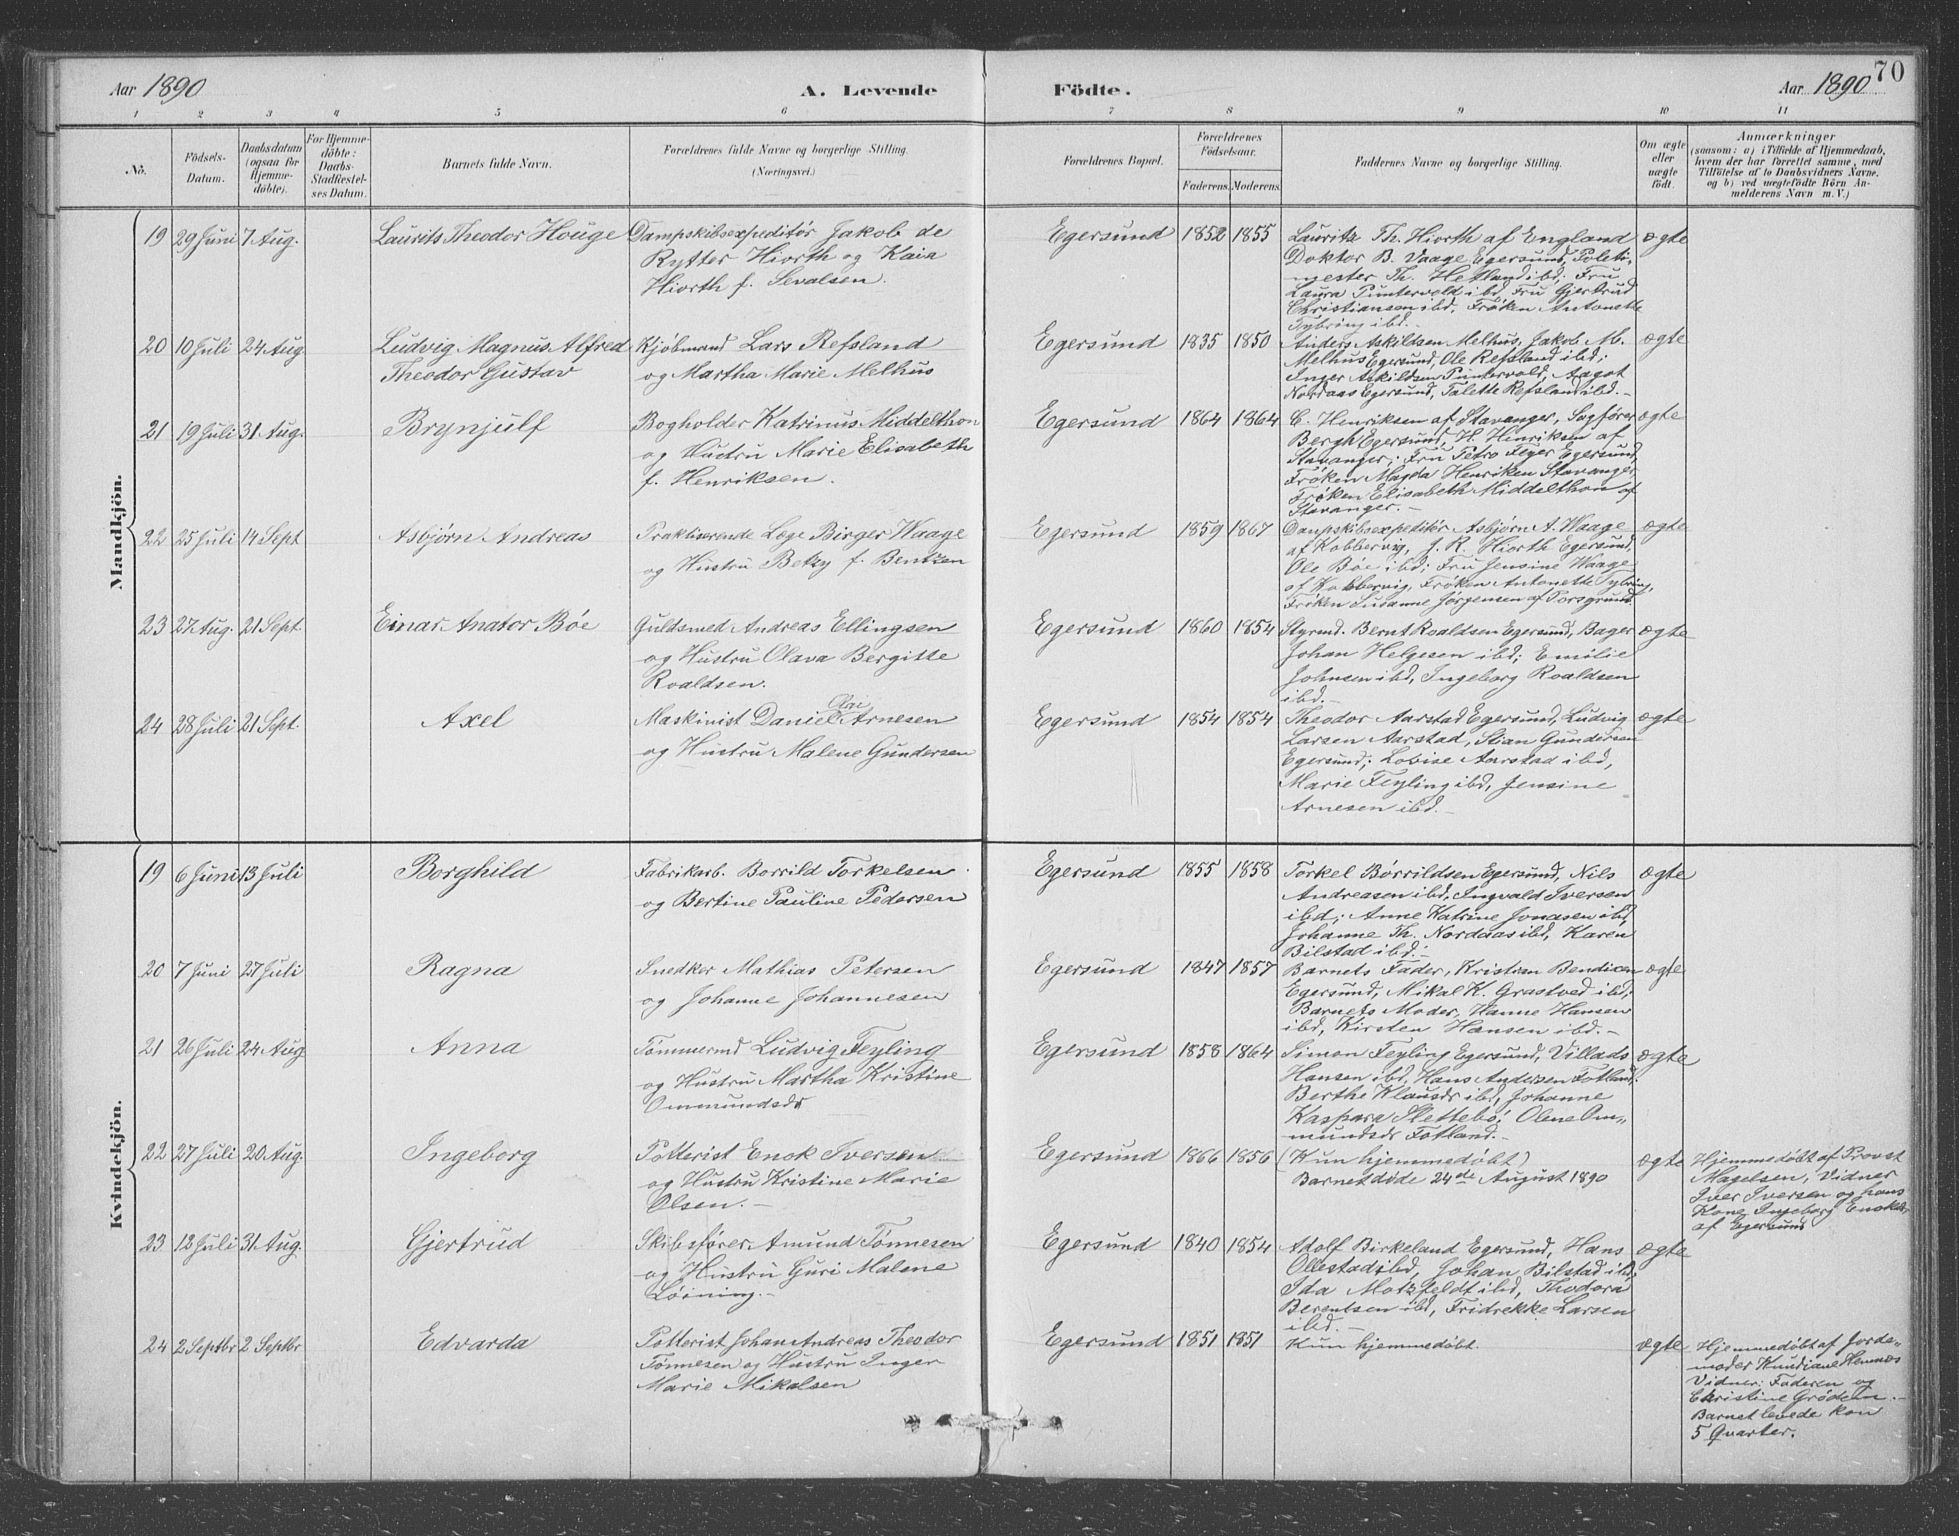 Aar 1890
A. Levende
Födte.
Aar 1890
70
1 2 3 4 5 6 7 8 9 10 11
No.
Födsels-
Datum.
Daabsdatum
(ogsaa for
Hjemme-
døbte).
For Hjemme-
døbte:
Daabs-
Stadfæstel-
ses Datum.
Barnets fulde Navn.
Forældrenes fulde Navne og borgerlige Stilling.
(Næringsvei.)
Forældrenes Bopæl.
Forældrenes
Födselsaar.
Faderens. Moderens.
Faddernes Navne og borgerlige Stilling.
Om ægte
eller
uægte
födt.
Anmærkninger
(saasom: a) i Tilfælde af Hjemmedaab,
hvem der har forrettet samme, med
Tilföielse af to Daabsvidners Navne,
og b) ved uægtefödte Börn An-
melderens Navn m. V.)
Mandkjön.
19 29 Juni 7 Aug. Laurits Theodor Houge
Dampskibsexpeditör Jakob de
Rytter Hiorth og Kaia
Hiorth f. Sevalsen.
Egersund 1852 1855
Lauritz Th. Hiorth af England
Doktor B. Vaage Egersund, Politi-
mester Th. Hetland ibd; Fru
Laura Puntervold ibd, Fru Gjertrud
Christiansen ibd, Frøken Antonette
Tybring ibd.
ægte
20 10 Juli 24 Aug. Ludvig Magnus Alfred
Theodor Gustav
Kjöbmand Lars Refsland
og Martha Marie Melhus
Egersund 1835 1850
Anders Askildsen Melhus, Jakob M.
Melhus Egersund, Ole Refsland ibd;
Inger Askildsen Puntervold, Aagot
Nordaas Egersund, Talette Refsland ibd.
ægte
21 19 Juli 31 Aug. Brynjulf
Bogholder Katrinus Middelthon
og Hustru Marie Elisabeth
f. Henriksen.
Egersund 1864 1864
C. Henriksen af Stavanger, Sagfører
Bergh Egersund, H. Hinriksen af
Stavanger; Fru Petra Feyer Egersund,
Frøken Magda Henriksen Stavanger
Frøken Elisabeth Middelthon af
Stavanger.
ægte
22 25 Juli 14 Sept Asbjørn Andreas
Praktiserende Læge Birger Waage
og Hustru Betzy f. Bentzen
Egersund 1859 1867
Dampskibsexpeditör Asbjørn A. Waage
af Kobbervig, J. R. Hiorth Egersund,
Ole Bøe ibd; Fru Jensine Waage
af Kobbervig, Frøken Antonette Tybring,
Frøken Susanne Jørgensen af Porsgrund.
ægte
23 27 Aug. 21 Sept. Einar Anator Bøe
Guldsmed Andreas Ellingsen
og Hustru Olava Bergitte
Roaldsen.
Egersund 1860 1854
Styrmd. Bernt Roaldsen Egersund, Bager
Johan Helgesen ibd; Emilie
Johnsen ibd, Ingeborg Roaldsen
ibd.
ægte
24 28 Juli 21 Sept. Axel
Maskinist Daniel Olai Arnesen
og Hustru Malene Gundersen
Egersund 1854 1854
Theodor Aarstad Egersund, Ludvig
Larsen Aarstad, Stian Gundersen
Egersund; Lovise Aarstad ibd,
Marie Feyling ibd, Jensine
Arnesen ibd.
ægte
Kvindekjön.
19 6 Juni 13 Juli Borghild
Fabrikarb. Borrild Torkelsen
og Bertine Pauline Pedersen
Egersund 1855 1858
Torkel Børrildsen Egersund, Nils
Andreasen ibd, Ingvald Iversen
ibd; Anne Katrine Jonasen ibd,
Johanne Th. Nordaas ibd, Karen
Bilstad ibd.
ægte
20 7 Juni 27 Juli Ragna
Snedker Mathias Petersen
og Johanne Johannesen
Egersund 1847 1857
Barnets Fader, Kristian Bendixen
Egersund, Mikal K. Grastved ibd;
Barnets Moder, Hanne Hansen
ibd, Kirsten Hansen ibd.
ægte
21 26 Juli 24 Aug Anna
Tømmermd Ludvig Feyling
og Hustru Martha Kristine
Ommundsdr
Egersund 1858 1864
Simon Feyling Egersund, Villads
Hansen ibd, Hans Andersen Fotland;
Berthe Klausdr ibd, Johanne
Kaspara Slettebø, Olene Om-
mundsdr Fotland.
ægte
22 27 Juli 20 Aug. Ingeborg
Potterist Enok Iversen
og Hustru Kristine Marie
Olsen.
Egersund 1866 1856
(Kun hjemmedøbt)
Barnet døde 24de August 1890
ægte
Hjemmedøbt af Provst
Magelsen, Vidner
Iver Iversen og hans
Kone Ingeborg
af Egersund
23 12 Juli 31 Aug. Gjertrud
Skibsfører Amund Tønnesen
og Hustru Guri Malene
Løining.
Egersund 1840 1854
Adolf Birkeland Egersund, Hans
Ollestad ibd, Johan Bilstad ibd;
Ida Motzfeldt ibd, Thodora
Berentsen ibd, Fridrekke Larsen
ibd.
ægte
24 2 Septbr 2 Septbr Edvarda
Potterist Johan Andreas Theodor
Tönnesen og Hustru Inger
Marie Mikalsen
Egersund 1851 1851
Kun hjemmedøbt.
ægte
Hjemmedøbt af Jorde-
moder Knudiane Hennes
Vidner: Faderen og
Christine Grødem.
Barnet levede kun
5 Quarter.